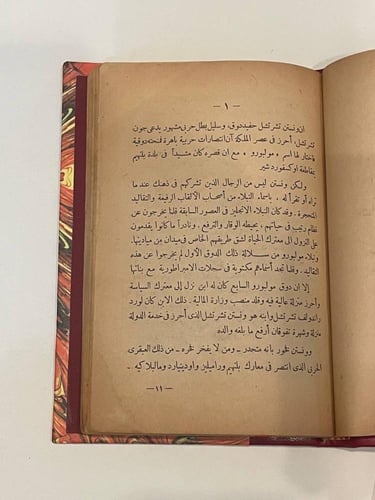 — ١ —
ان ونستن تشرتشل حفيد دوق، وسليل بطل حربى مشهور يدعى جون
تشرتشل، أحرز فى عصر الملكة آن انتصارات حربية باهرة فمنحته دوقية
واختار لها اسم « مولبورو » مع ان قصره كان مشيداً فى بلدة بلنهيم
بمقاطعة اوكسفورد شير
ولكن ونستن ليس من الرجال الذين تشركهم فى ذهنك عند ما
تراه أو تقرأ له ، باسماء النبلاء من أصحاب الألقاب الرفيعة والتقاليد
المتحجرة . وقد كان النبلاء الانجليز فى العصور السابقة قلما يخرجون عن
نظام رتيب فى حياتهم، يحيطه الوقار والترفع . ونادراً ما كانوا يقدمون
على النزول الى معترك الحياة لشق طريقهم الخاص فى ميدان من ميادينها.
ونبلاء مولبورو من سلالة ذلك الدوق الأول لم يخرجوا عن هذه
التقاليد . وقلما تجد أسماءهم مكتوبة فى سجلات الامبراطورية مع بناتها
إلا ان دوق مولبورو السابع كان له ابن نزل إلى معترك السياسة
وأحرز منزلة عالية فيه وقلد منصب وزارة المالية . ذلك الابن كان لورد
راندولف تشرتشل وابنه هو ونستن تشرتشل الذى أحرز فى خدمة الدولة
منزلة وشهرة تفوقان أرفع ما بلغه والده
وونستن فخور بانه متحدر ــ ومن لا يفخر فخره ــ من ذلك العبقرى
الحربى الذى انتصر فى معارك بلنهيم وراميليز واودينارد ومالبلاكيه .
— ١١ —